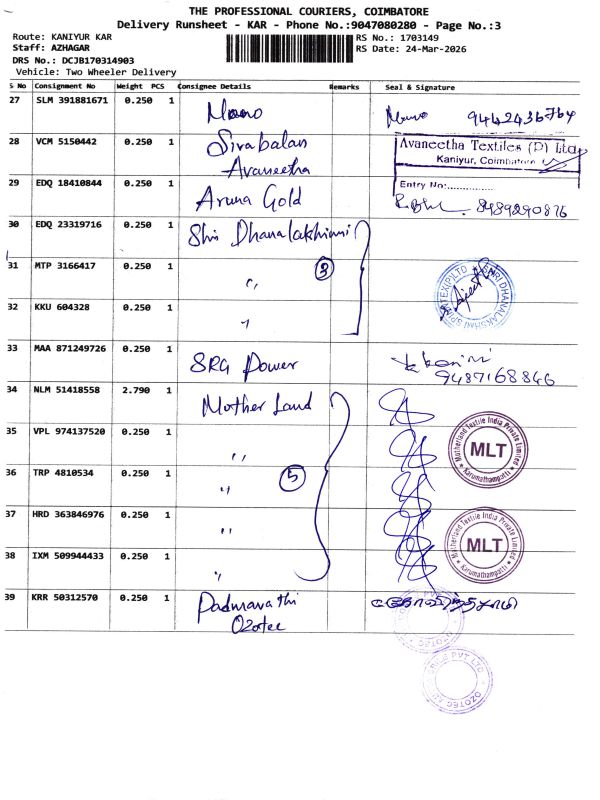 THE PROFESSIONAL COURIERS, COIMBATORE
Delivery Runsheet - KAR - Phone No.:9047080280 - Page No.:3
Route: KANIYUR KAR
RS No.: 1703149
Staff: AZHAGAR
RS Date: 24-Mar-2026
DRS No.: DCJB170314903
Vehicle: Two Wheeler Delivery
S No Consignment No Weight PCS Consignee Details Remarks Seal & Signature
27 SLM 391881671 0.250 1 Mono
28 VCM 5150442 0.250 1 Sivabalan
Avaneetha
Avaneetha Textiles (P) Ltd.,
Kaniyur, Coimbatore
Entry No:..............
29 EDQ 18410844 0.250 1 Aruna Gold 8489290876
30 EDQ 23319716 0.250 1 Shri Dhanalakshmi
31 MTP 3166417 0.250 1 〃 3
SHRI DHANALAKSHMI SPINTEX (P) LTD
32 KKU 604328 0.250 1 〃
33 MAA 871249726 0.250 1 SRG Power
9487168846
34 NLM 51418558 2.790 1 Mother Land
35 VPL 974137520 0.250 1 〃
Motherland Textile India Private Limited
MLT
Karumathampatti
36 TRP 4810534 0.250 1 〃 5
37 HRD 363846976 0.250 1 〃
Motherland Textile India Private Limited
MLT
Karumathampatti
38 IXM 509944433 0.250 1 〃
39 KRR 50312570 0.250 1 Padmavathi
Ozotec